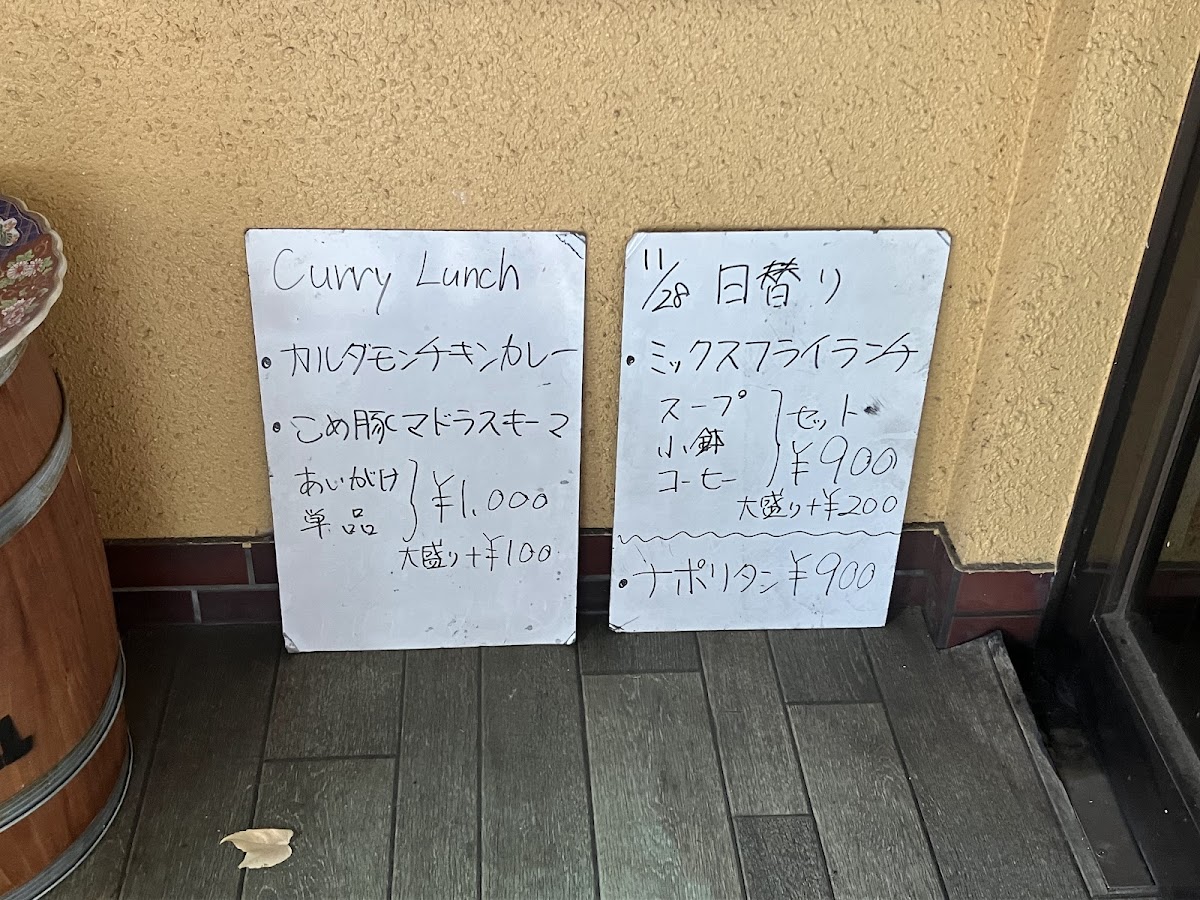 Curry Lunch
・カルダモンチキンカレー
・こめ豚マドラスキーマ
あいがけ
単品
¥1.000
大盛り+¥100
11/28 日替り
・ミックスフライランチ
スープ
小鉢
コーヒー
セット
¥900
大盛り+¥200
・ナポリタン¥900